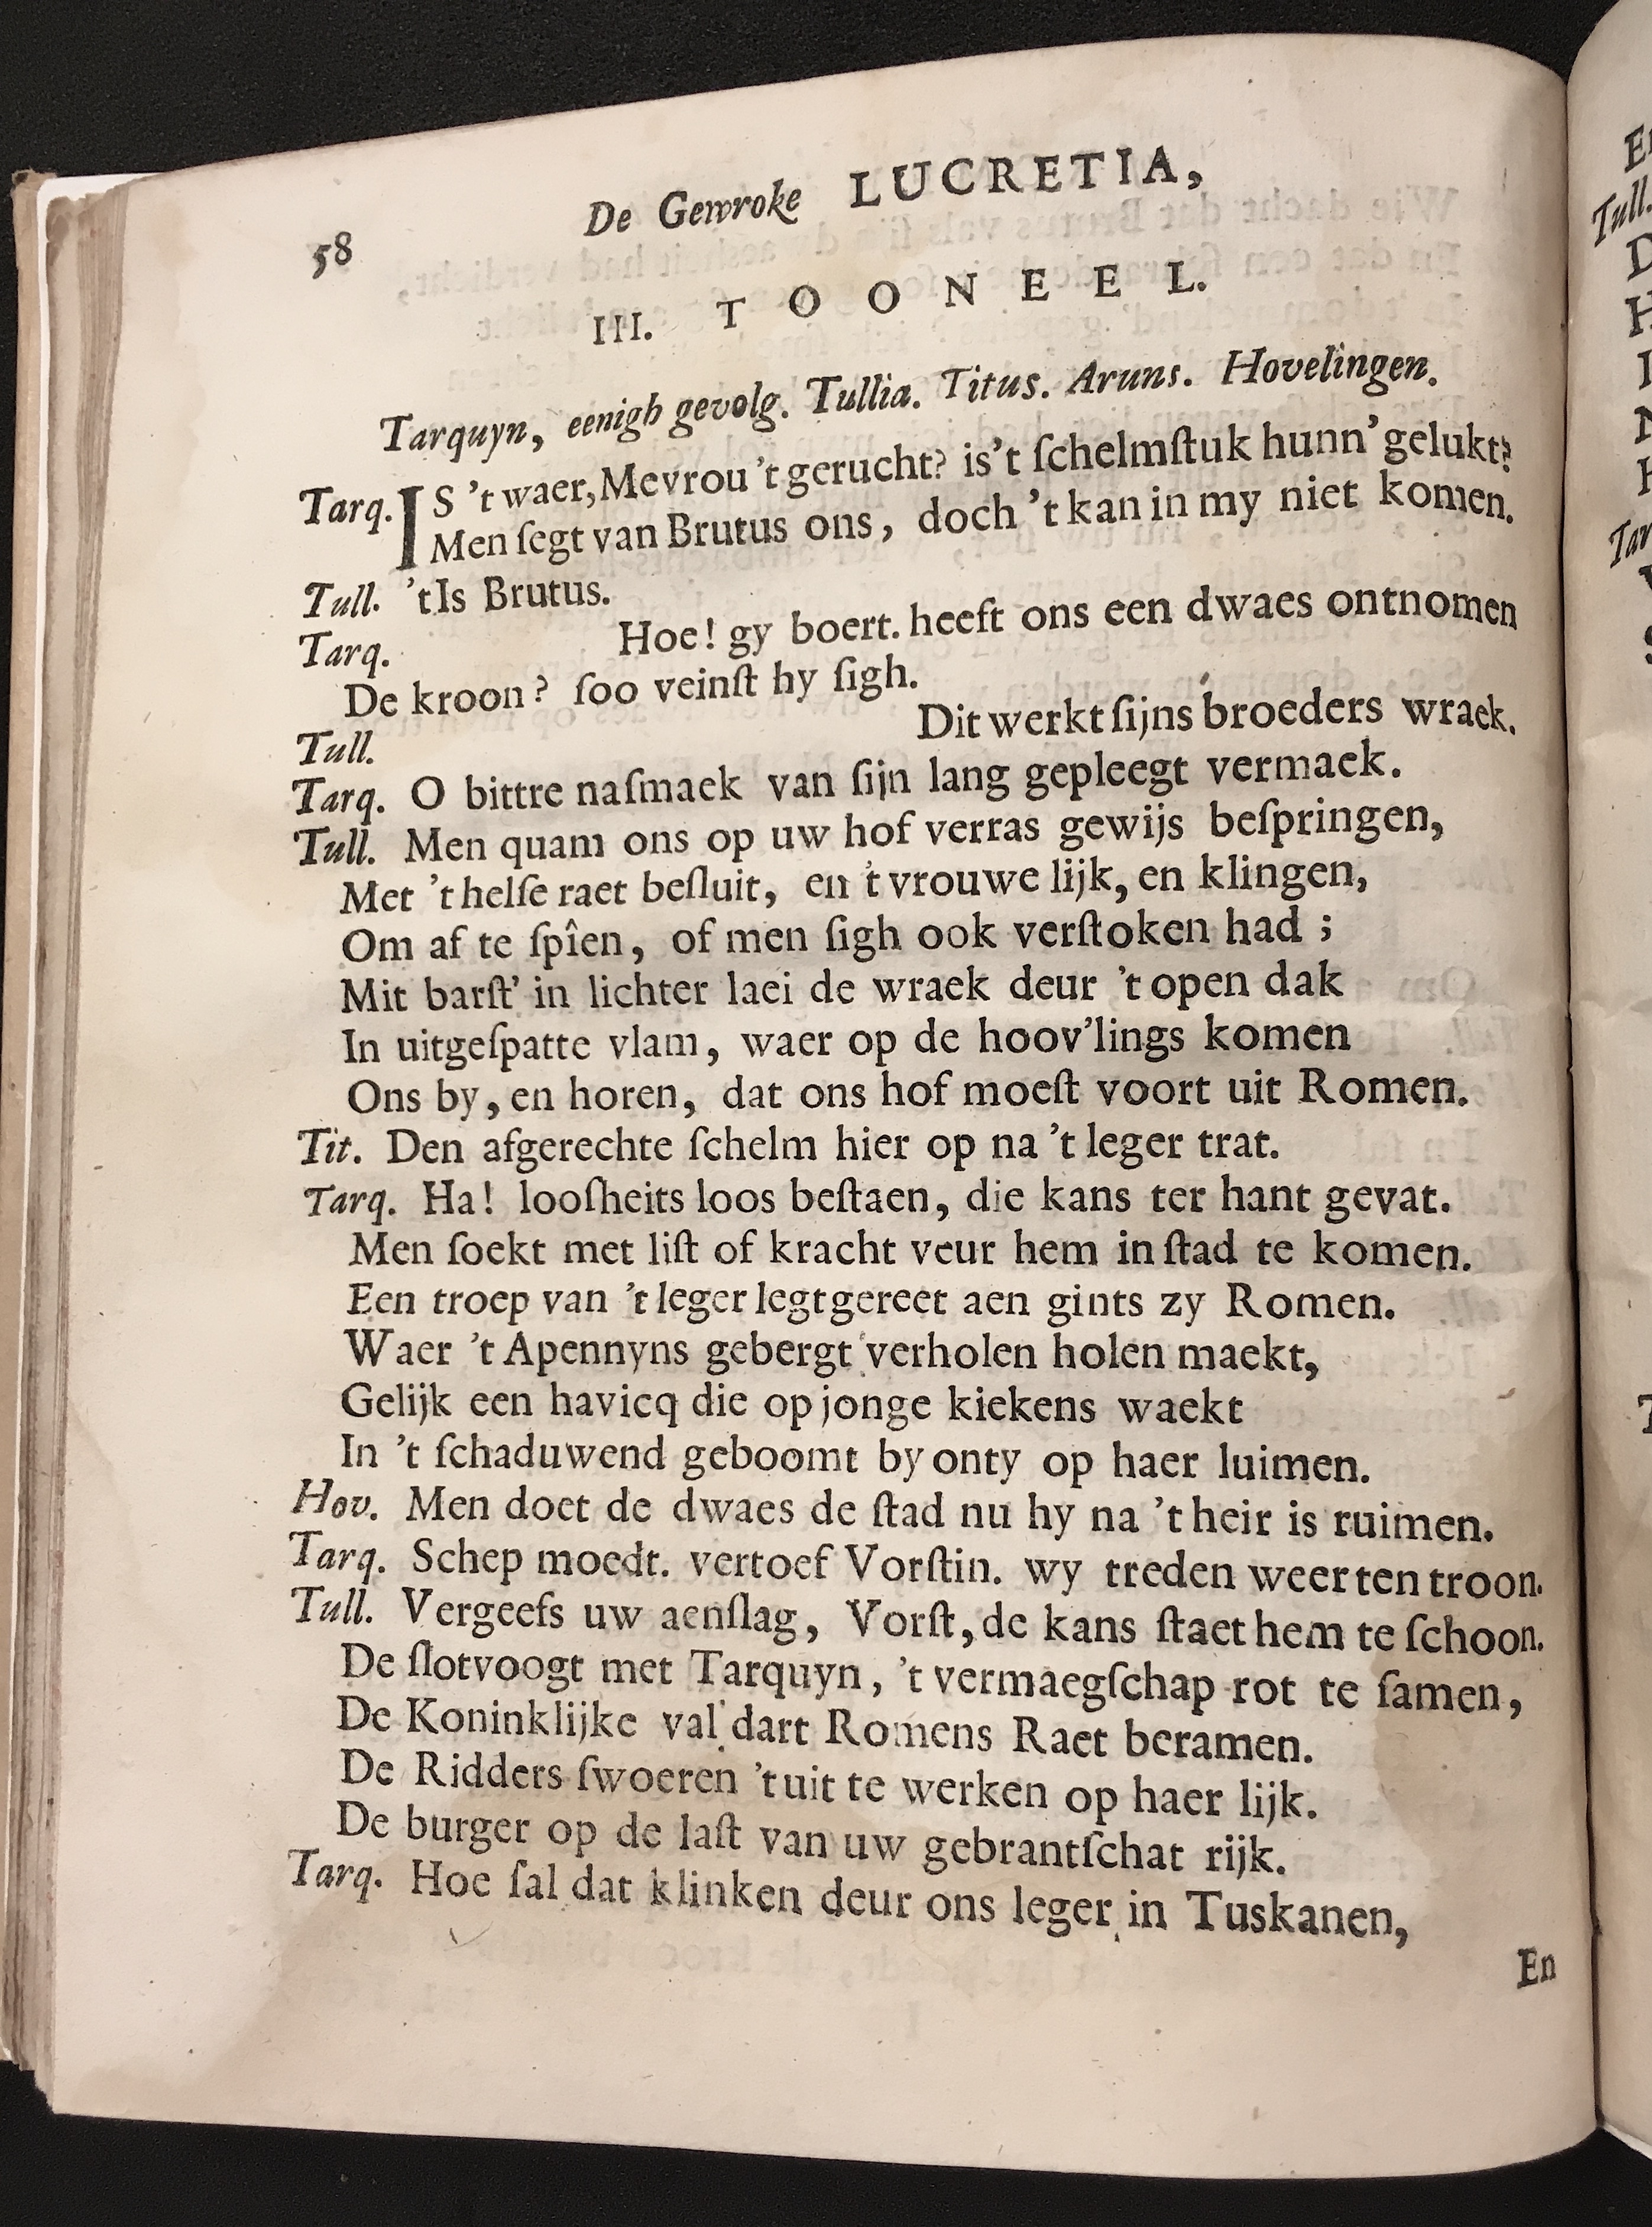 58
De Gewroke LUCRETIA,
III. TOONEEL.
Tarquyn, eenigh gevolg. Tullia. Titus. Aruns. Hovelingen.
Tarq. IS 't waer, Mevrou 't gerucht? is't ſchelmſtuk hunn' gelukt?
Men ſegt van Brutus ons, doch 't kan in my niet komen.
Tull. 't Is Brutus.
Tarq. Hoe! gy boert. heeft ons een dwaes ontnomen
De kroon? ſoo veinſt hy ſigh.
Tull. Dit werkt ſijns broeders wraek.
Tarq. O bittre naſmaek van ſijn lang gepleegt vermaek.
Tull. Men quam ons op uw hof verras gewijs beſpringen,
Met 't helſe raet beſluit, en 't vrouwe lijk, en klingen,
Om af te ſpîen, of men ſigh ook verſtoken had ;
Mit barſt' in lichter laei de wraek deur 't open dak
In uitgeſpatte vlam, waer op de hoov'lings komen
Ons by, en horen, dat ons hof moeſt voort uit Romen.
Tit. Den afgerechte ſchelm hier op na 't leger trat.
Tarq. Ha! looſheits loos beſtaen, die kans ter hant gevat.
Men ſoekt met liſt of kracht veur hem in ſtad te komen.
Een troep van 't leger legt gereet aen gints zy Romen.
Waer 't Apennyns gebergt verholen holen maekt,
Gelijk een havicq die op jonge kiekens waekt
In 't ſchaduwend geboomt by onty op haer luimen.
Hov. Men doet de dwaes de ſtad nu hy na 't heir is ruimen.
Tarq. Schep moedt. vertoef Vorſtin. wy treden weer ten troon.
Tull. Vergeefs uw aenſlag, Vorſt, de kans ſtaet hem te ſchoon.
De ſlotvoogt met Tarquyn, 't vermaegſchap rot te ſamen,
De Koninklijke val dart Romens Raet beramen.
De Ridders ſwoeren 't uit te werken op haer lijk.
De burger op de laſt van uw gebrantſchat rijk.
Tarq. Hoe ſal dat klinken deur ons leger in Tuskanen,
En